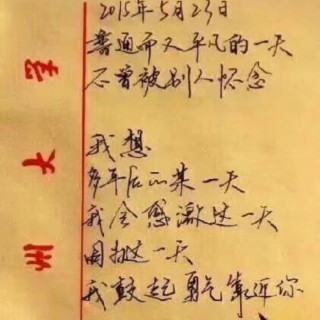 2015年5月23日
普通而又平凡的一天
不曾被别人怀念
我想
多年后的某一天
我会感激这一天
因为这一天
我鼓起勇气靠近你
州大学